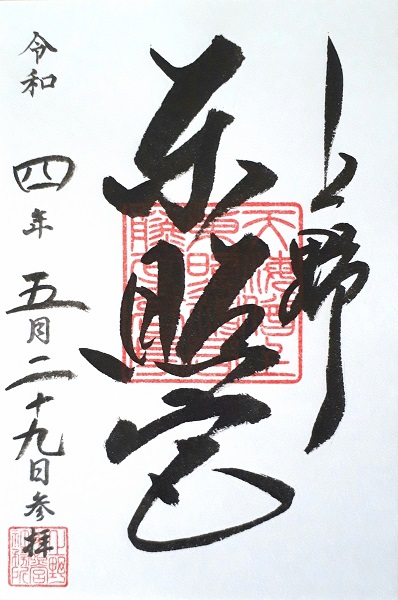 上野
東照宮
令和四年五月二十九日参拝